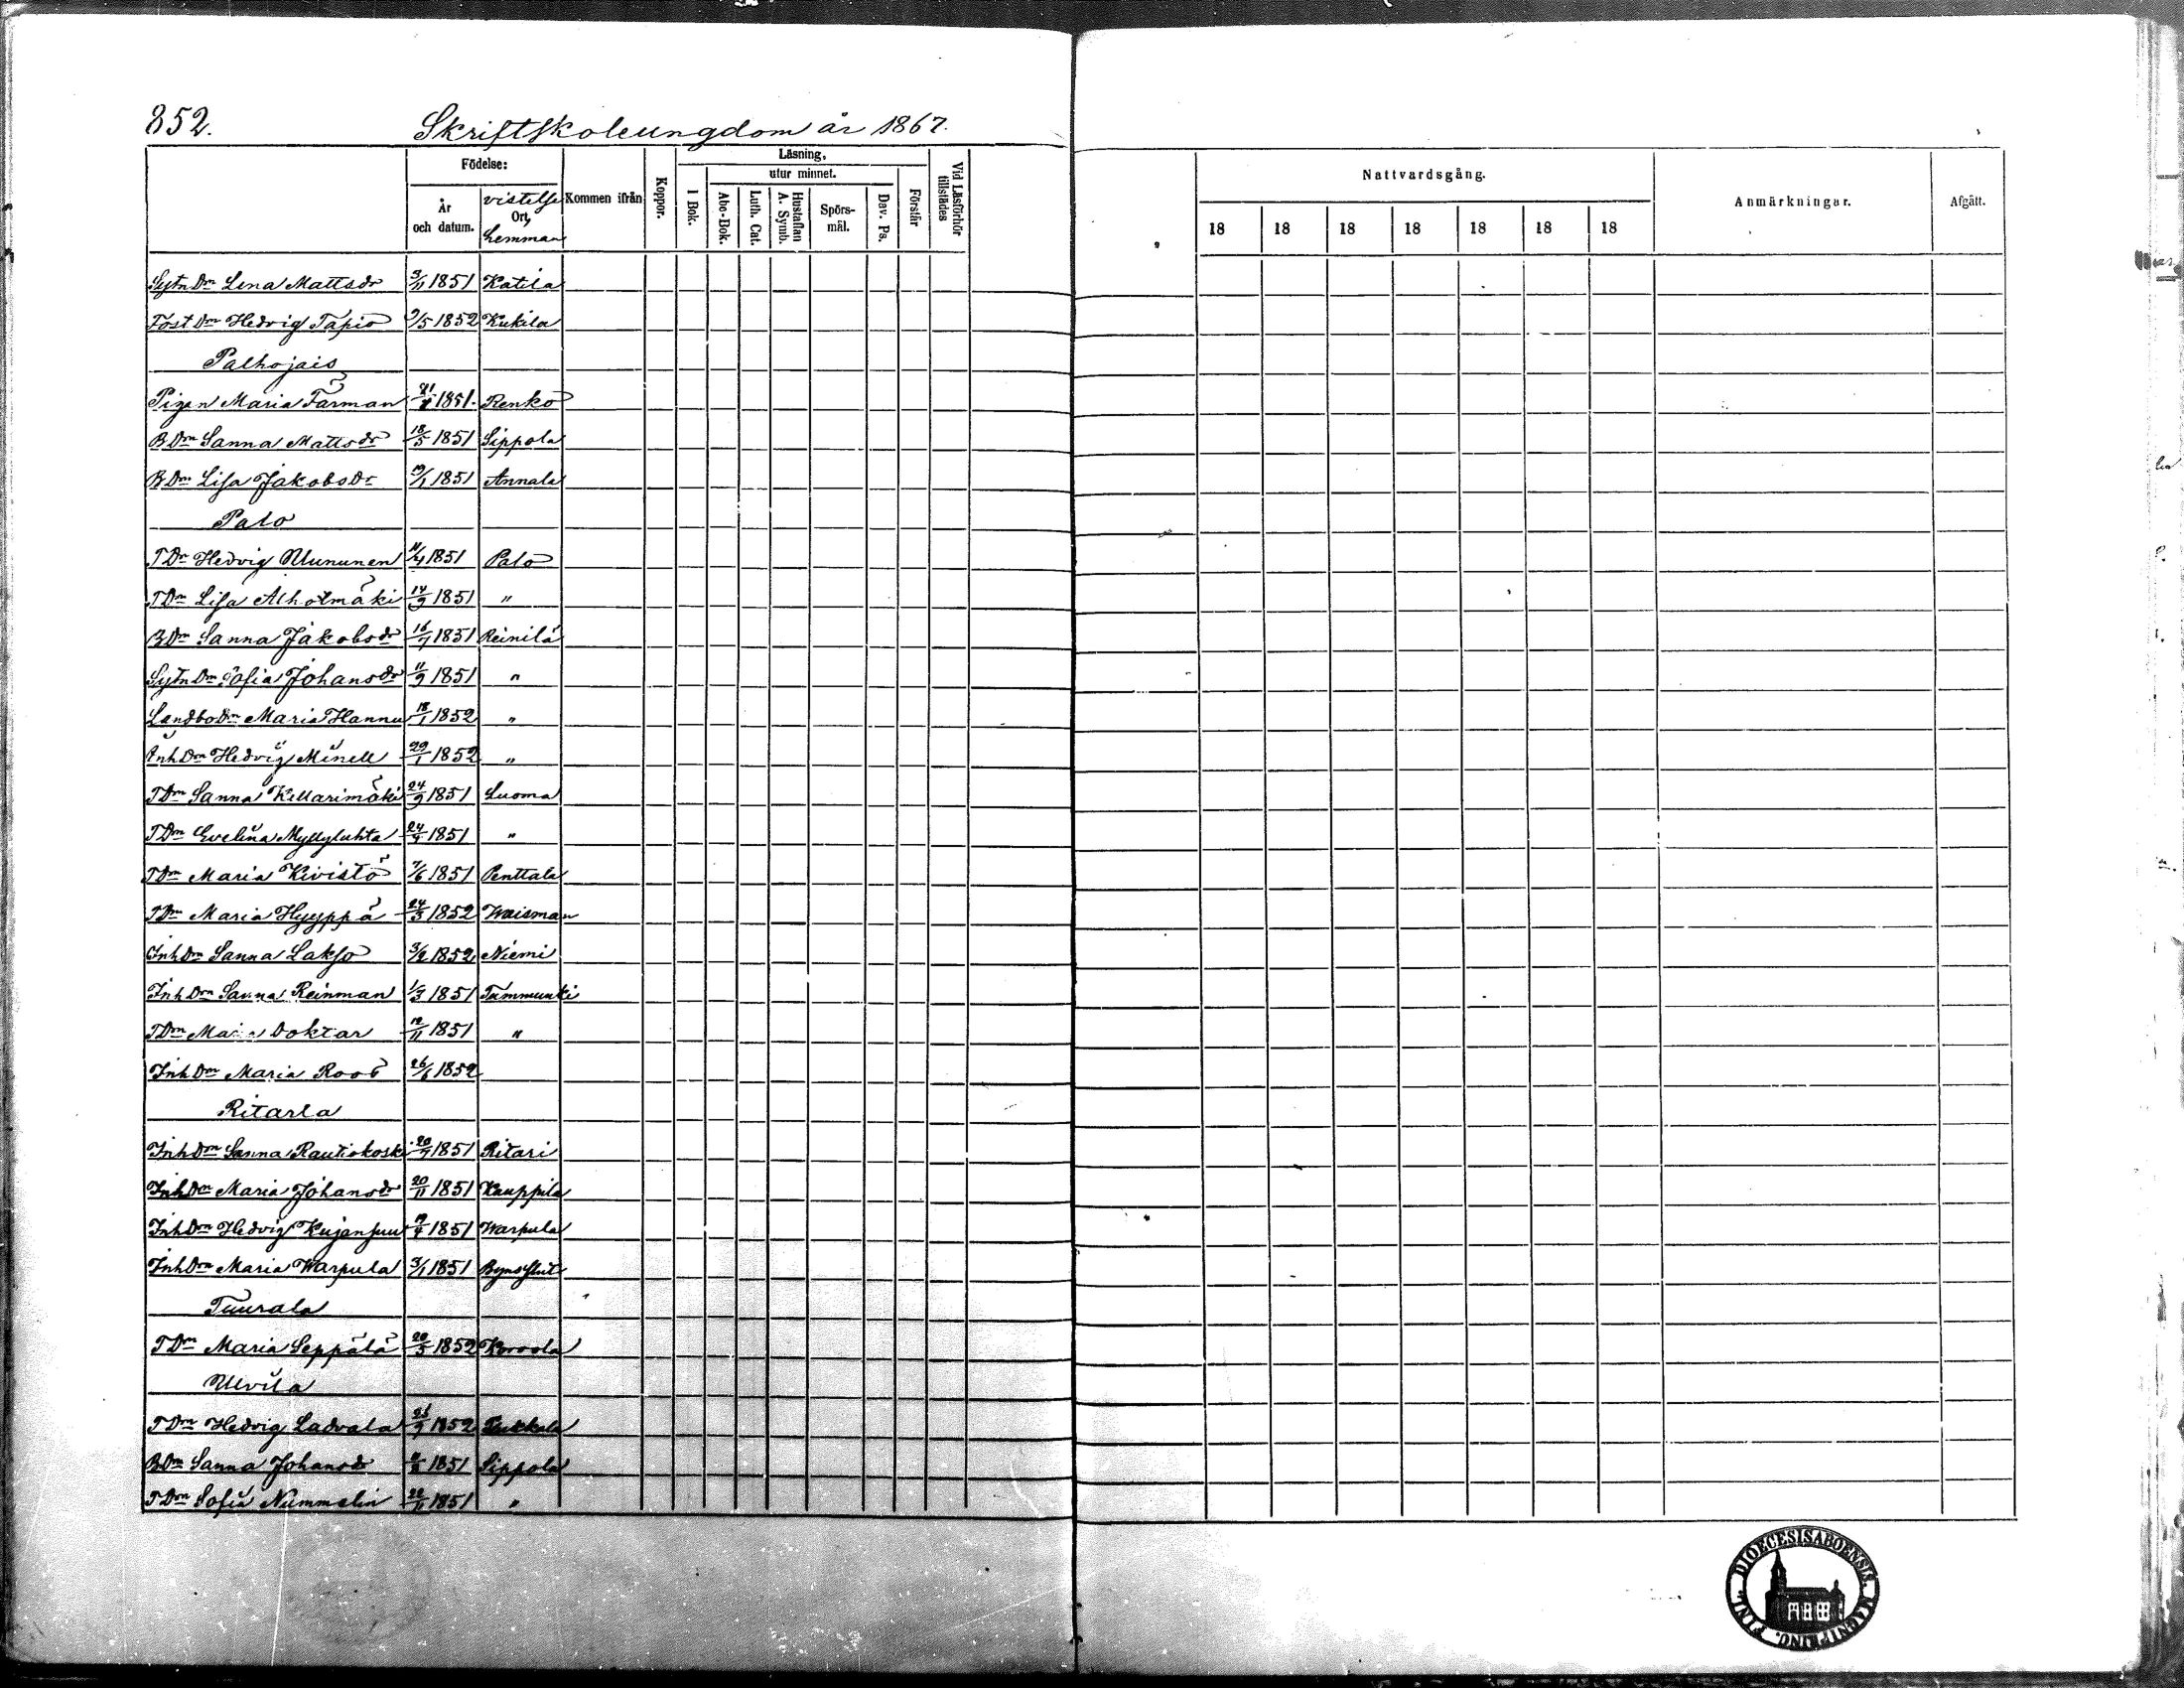 852.
Skriftskoleungdom år 1867.
Födelse:
År och datum.
vistelse Ort, hemman
Kommen ifrån
Koppor.
Läsning,
utur minnet.
I Bok.
Abc-Bok.
Luth. Cat.
Hustaflan A. Symb.
Spörs-mål.
Dav. Ps.
Förstår
Vid Läsförhör tillstädes
Nattvardsgång.
18 18 18 18 18 18 18
Anmärkningar.
Afgått.
Sytn Dn Lena Mattsdr 3/11 1851 Katila
Fost Dn Hedvig Tapio 9/5 1852 Kukila
Palhojais
Pigan Maria Färman 1851. Renko
B Dn Sanna Mattsdr 18/5 1851 Sippola
B Dn Lisa Jakobsdr 19/1 1851 Annala
Palo
T Dn Hedvig Mununen 11/4 1851 Palo
T Dn Lisa Alholmäki 14/9 1851 "
B Dn Sanna Jakobsdr 16/7 1851 Reinilä
Sytn Dn Sofia Johansdr 11/9 1851 "
Landbo Dn Maria Hannu 18/1 1852 "
Inh Dn Hedvig Minell 29/1 1852 "
T Dn Sanna Kellarimäki 24/9 1851 Luoma
T Dn Evelina Myllyluhta 24/4 1851 "
T Dn Maria Kivistö 7/6 1851 Penttala
T Dn Maria Hyyppä 24/3 1852 Waisman
Inh Dn Sanna Lakso 3/2 1852 Niemi
Inh Dn Sanna Reinman 1/3 1851 Tammunki
T Dn Maria Doktar 12/11 1851 "
Inh Dn Maria Roos 26/6 1852
Ritarla
Inh Dn Sanna Rautiokoski 20/7 1851 Ritari
Inh Dn Maria Johansdr 20/11 1851 Kauppila
Inh Dn Hedvig Kujansuu 19/4 1851 Warpula
Inh Dn Maria Warpula 3/1 1851
Tuurala
T Dn Maria Seppälä 20/5 1852
Ulvila
T Dn Hedvig Ladvala 1852 Tukkala
B Dn Sanna Johansdr 1851 Sippola
T Dn Sofia Nummelin 22/11 1851 "
DIOECESIS ABOENSIS MAGNI PRINC. FINL.